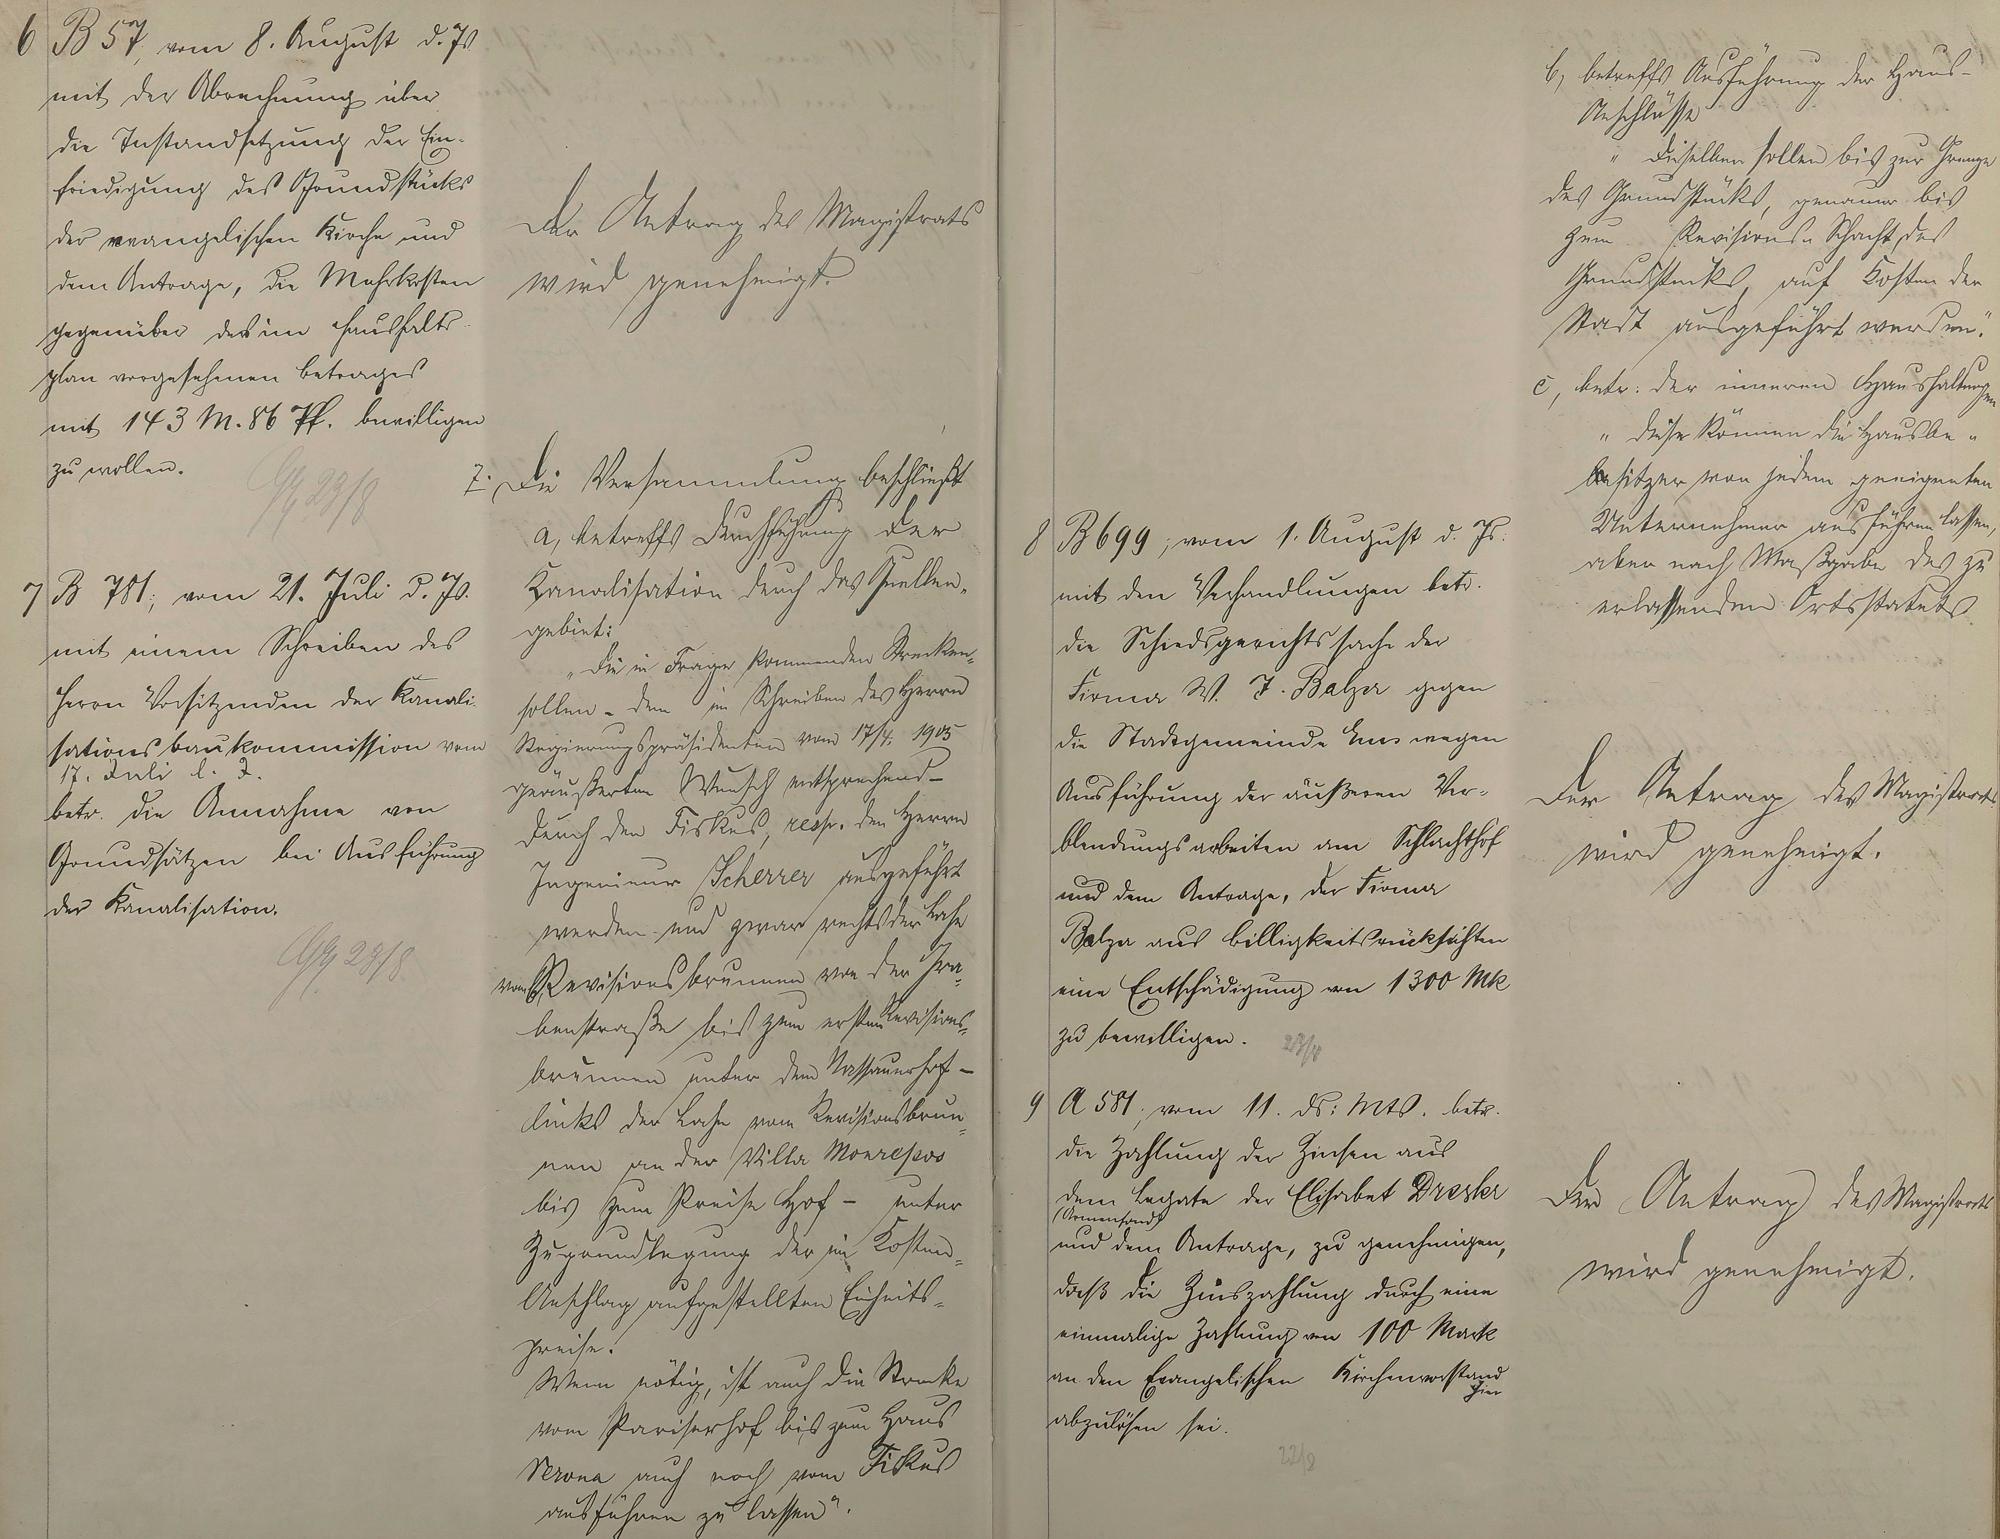 6 B 57, vom 8. August d. Js
mit der Abrechnung über
die Instandsetzung der Ein-
friedigung des Grundstücks
der evangelischen Kirche und
dem Antrage, die Mehrkosten
gegenüber des im Haushalts-
plan vorgesehenen betrages
mit 143 M. 86 Pf. bewilligen
zu wollen.
23/8
Der Antrag des Magistrats
wird genehmigt.
7 B 781, vom 21. Juli d. Js.
mit einem Schreiben des
Herrn Vorsitzenden der Kanali-
sationsbaukommission vom
17. Juli l. J.
betr. die Annahme von
Grundsätzen bei Ausführung
der Kanalisation.
23/8
7. Die Versammlung beschließt
a, betreffs Durchführung der
Kanalisation durch das Quellen-
gebiet:
„Die in Frage kommenden Strecken
sollen - dem im Schreiben des Herrn
Regierungspräsidenten vom 17/4. 1905
geäußerten Wunsch entsprechend -
durch den Fiskus, resp. den Herrn
Ingenieur Scherrer ausgeführt
werden und zwar rechts der Lahn
vom Revisionsbrunnen von der Gra-
benstraße bis zum ersten Revisions-
brunnen unter dem Nassauerhof -
links der Lahn vom Revisionsbrun-
nen an der Villa Monrepos
bis zum Preise Hof - unter
Zugrundlegung der im Kosten-
Anschlag aufgestellten Einheits-
preise.
Wenn nötig, ist auch die Strecke
vom Pariserhof bis zum Haus
Verona auch noch vom Fiskus
ausführen zu lassen".
b, betreffs Ausführung der Haus-
Anschlüsse
„Dieselben sollen bis zur Grenze
des Grundstücks, genauer bis
zum Revisions-Schacht des
Grundstücks, auf Kosten der
Stadt ausgeführt werden".
c, betr. der inneren Haushaltungen
„diese können die Hausbe-
besitzer von jedem geeigneten
Unternehmer ausführen lassen,
aber nach Maßgabe des zu
erlassenden Ortsstatuts.
8 B 699, vom 1. August d. Js.
mit den Verhandlungen betr.
die Schiedsgerichtssache der
Firma W. J. Balzer gegen
die Stadtgemeinde Ems wegen
Ausführung der äußeren Ver-
blendungsarbeiten am Schlachthof
und dem Antrage, der Firma
Balzer aus billigkeitsrücksichten
eine Entschädigung von 1300 Mk
zu bewilligen.
23/8
Der Antrag des Magistrats
wird genehmigt.
9 A 581, vom 11. ds: Mts. betr.
die Zahlung der Zinsen aus
dem Legate der Elisabet Dresler
(Armenfond)
und dem Antrage, zu genehmigen,
daß die Zinszahlung durch eine
einmalige Zahlung von 100 Mark
an den Evangelischen Kirchenvorstand
hier
abzulösen sei.
Der Antrag des Magistrats
wird genehmigt.